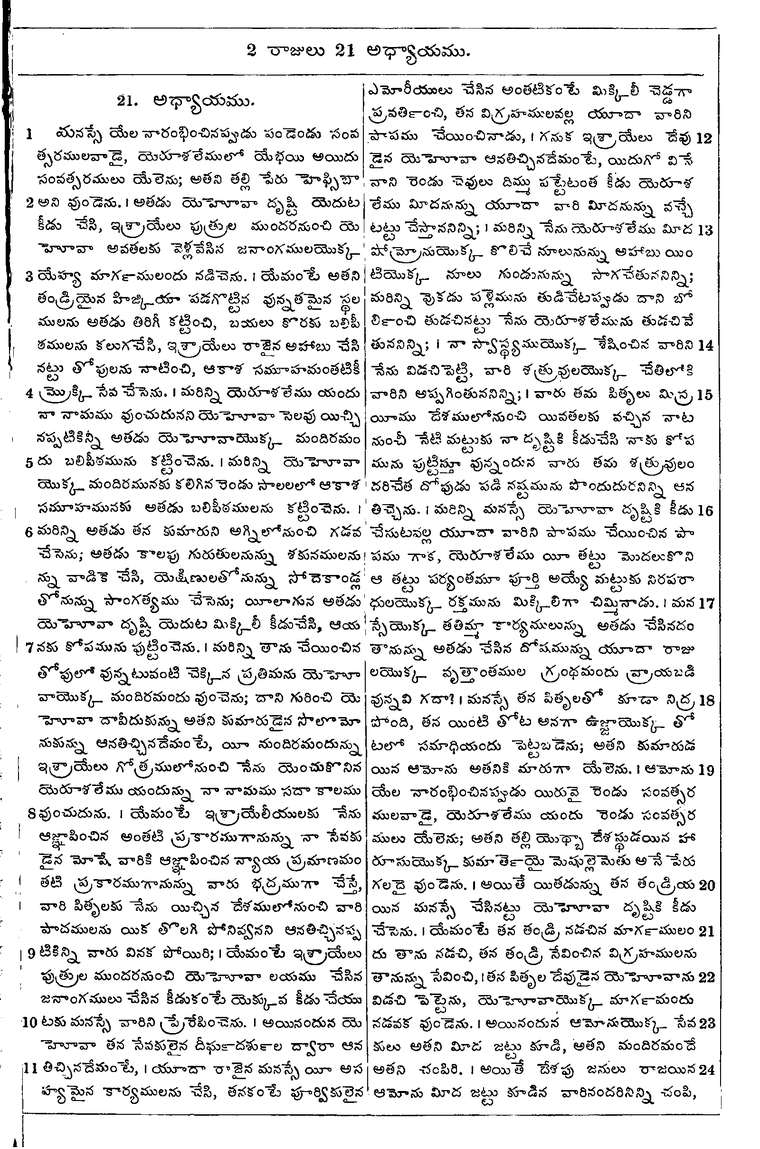 2 రాజులు 21 అధ్యాయము.
21. అధ్యాయము.
1 మనస్సే యేల నారంభించినప్పుడు పండెండు సంవ
త్సరములవాడై, యెరూశలేములో యేభయి అయిదు
సంవత్సరములు యేలెను; అతని తల్లి పేరు హెఫ్సిబా
2 అని వుండెను. । అతడు యెహోవా దృష్టి యెదుట
కీడు చేసి, ఇశ్రాయేలు పుత్రుల ముందరనుంచి యె
హోవా అవతలకు వెళ్లవేసిన జనాంగములయొక్క
3 యేహ్య మార్గములందు నడిచెను. । యేమంటే అతని
తండ్రియైన హిజ్కియా పడగొట్టిన వున్నతమైన స్థల
ములను అతడు తిరిగీ కట్టించి, బయలు కొరకు బలిపీ
ఠములను కలుగచేసి, ఇశ్రాయేలు రాజైన అహాబు చేసి
నట్టు తోపులను నాటించి, ఆకాశ సమూహమంతటికీ
4 మ్రొక్కి సేవ చేసెను. । మరిన్ని యెరూశలేము యందు
నా నామము వుంచుదునని యెహోవా సెలవు యిచ్చి
నప్పటికిన్ని అతడు యెహోవాయొక్క మందిరమం
5 దు బలిపీఠమును కట్టించెను. । మరిన్ని యెహోవా
యొక్క మందిరమునకు కలిగిన రెండు సాలలలో ఆకాశ
సమూహమునకు అతడు బలిపీఠములను కట్టించెను. ।
6 మరిన్ని అతడు తన కుమారుని అగ్నిలోనుంచి గడవ
చేసెను; అతడు కాలపు గురుతులనున్ను శకునములను
న్ను వాడికె చేసి, యక్షిణులతోనున్ను సోదెకాండ్ల
తోనున్ను సాంగత్యము చేసెను; యీలాగున అతడు
యెహోవా దృష్టి యెదుట మిక్కిలీ కీడుచేసి, ఆయ
7 నకు కోపమును పుట్టించెను. । మరిన్ని తాను చేయించిన
తోపులో వున్నటువంటి చెక్కిన ప్రతిమను యెహో
వాయొక్క మందిరమందు వుంచెను; దాని గురించి యె
హోవా దావీదుకున్ను అతని కుమారుడైన సొలొమో
నుకున్ను ఆనతిచ్చినదేమంటే, యీ మందిరమందున్ను
ఇశ్రాయేలు గోత్రములోనుంచి నేను యెంచుకొనిన
యెరూశలేము యందున్ను నా నామము సదా కాలము
8 వుంచుదును. । యేమంటే ఇశ్రాయేలీయులకు నేను
ఆజ్ఞాపించిన అంతటి ప్రకారముగానున్ను నా సేవకు
డైన మోషే వారికి ఆజ్ఞాపించిన న్యాయ ప్రమాణమం
తటి ప్రకారముగానున్ను వారు భద్రముగా చేస్తే,
వారి పితృలకు నేను యిచ్చిన దేశములోనుంచి వారి
పాదములను యిక తొలగి పోనివ్వనని ఆనతిచ్చినప్ప
9 టికిన్ని వారు వినక పోయిరి; । యేమంటే ఇశ్రాయేలు
పుత్రుల ముందరనుంచి యెహోవా లయము చేసిన
జనాంగములు చేసిన కీడుకంటే యెక్కువ కీడు చేయు
10 టకు మనస్సే వారిని ప్రేరేపించెను. । అయినందున యె
హోవా తన సేవకులైన దీర్ఘదర్శుల ద్వారా ఆన
11 తిచ్చినదేమంటే, । యూదా రాజైన మనస్సే యీ అస
హ్యమైన కార్యములను చేసి, తనకంటే పూర్వికులైన
ఎమోరీయులు చేసిన అంతటికంటే మిక్కిలి చెడ్డగా
ప్రవర్తించి, తన విగ్రహములవల్ల యూదా వారిని
పాపము చేయించినాడు, । గనుక ఇశ్రాయేలు దేవు 12
డైన యెహోవా ఆనతిచ్చినదేమంటే, యిదుగో వినే
వాని రెండు చెవులు దిమ్ము పట్టేటంత కీడు యెరూశ
లేము మీదనున్ను యూదా వారి మీదనున్ను వచ్చే
టట్టు చేస్తాననిన్ని; । మరిన్ని నేను యెరూశలేము మీద 13
షోమ్రోనుయొక్క కొలిచే నూలునున్ను అహాబు యిం
టియొక్క నూలు గుండునున్ను సాగచేతుననిన్ని;
మరిన్ని వొకడు పళ్లెమును తుడిచేటప్పుడు దాని బో
ర్లించి తుడచినట్టు నేను యెరూశలేమును తుడచివే
తుననిన్ని; । నా స్వాస్థ్యముయొక్క శేషించిన వారిని 14
నేను విడచిపెట్టి, వారి శత్రువులయొక్క చేతిలోకి
వారిని అప్పగింతుననిన్ని; । వారు తమ పితృలు మిస్ర 15
యీము దేశములోనుంచి యివతలకు వచ్చిన నాట
నుంచీ నేటి మట్టుకు నా దృష్టికి కీడుచేసి నాకు కోప
మును పుట్టిస్తూ వున్నందున వారు తమ శత్రువులం
దరిచేత దోపుడు పడి నష్టమును పొందుదురనిన్ని ఆన
తిచ్చెను. । మరిన్ని మనస్సే యెహోవా దృష్టికి కీడు 16
చేసుటవల్ల యూదా వారిని పాపము చేయించిన పా
పము గాక, యెరూశలేము యీ తట్టు మొదలుకొని
ఆ తట్టు పర్యంతమూ పూర్తి అయ్యే మట్టుకు నిరపరా
ధులయొక్క రక్తమును మిక్కిలిగా చిమ్మినాడు. । మన 17
స్సేయొక్క తతిమ్మా కార్యములున్ను అతడు చేసినదం
తానున్ను అతడు చేసిన దోషమున్ను యూదా రాజు
లయొక్క వృత్తాంతముల గ్రంథమందు వ్రాయబడి
వున్నవి గదా? । మనస్సే తన పితృలతో కూడా నిద్ర 18
పోంది, తన యింటి తోట అనగా ఉజ్జాయొక్క తో
టలో సమాధియందు పెట్టబడెను; అతని కుమారుడ
యిన ఆమోను అతనికి మారుగా యేలెను. । ఆమోను 19
యేల నారంభించినప్పుడు యిరువై రెండు సంవత్సర
ములవాడై, యెరూశలేము యందు రెండు సంవత్సర
ములు యేలెను; అతని తల్లి యొట్బా దేశస్థుడయిన హా
రూసుయొక్క కుమార్తెయై మెషుల్లెమెతు అనే పేరు
గలదై వుండెను. । అయితే యితడున్ను తన తండ్రియ 20
యిన మనస్సే చేసినట్టు యెహోవా దృష్టికి కీడు
చేసెను. । యేమంటే తన తండ్రి నడచిన మార్గములం 21
దు తాను నడచి, తన తండ్రి సేవించిన విగ్రహములను
తానున్ను సేవించి, । తన పితృల దేవుడైన యెహోవాను 22
విడచి పెట్టెను, యెహోవాయొక్క మార్గమందు
నడవక వుండెను. । అయినందున ఆమోనుయొక్క సేవ 23
కులు అతని మీద జట్టు కూడి, అతని మందిరమందే
అతని చంపిరి. । అయితే దేశపు జనులు రాజయిన 24
ఆమోను మీద జట్టు కూడిన వారినందరినిన్ని చంపి,